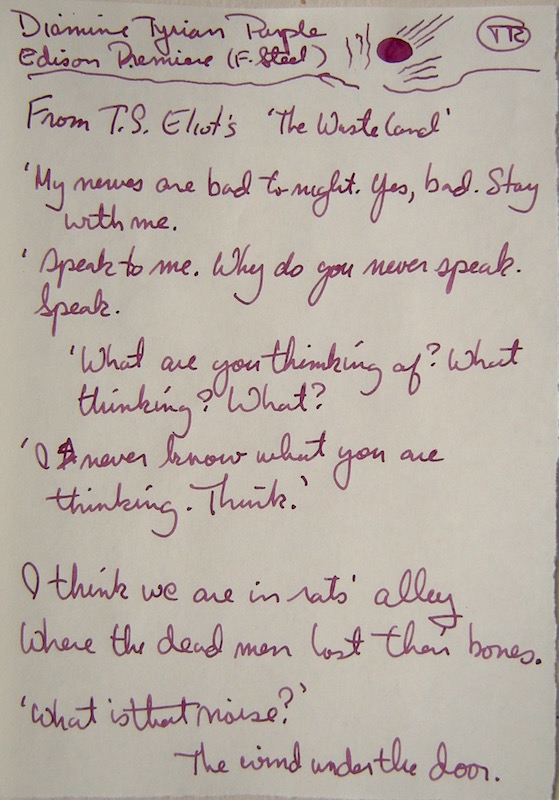 Diamine Tyrian Purple
Edison Premiere (F. Steel)
TR
From T.S. Eliot's 'The Waste Land'
'My nerves are bad to-night. Yes, bad. Stay
with me.
'Speak to me. Why do you never speak.
Speak.
'What are you thinking of? What
thinking? What?
'I never know what you are
thinking. Think.'
I think we are in rats' alley
Where the dead men lost their bones.
'What is that noise?'
The wind under the door.